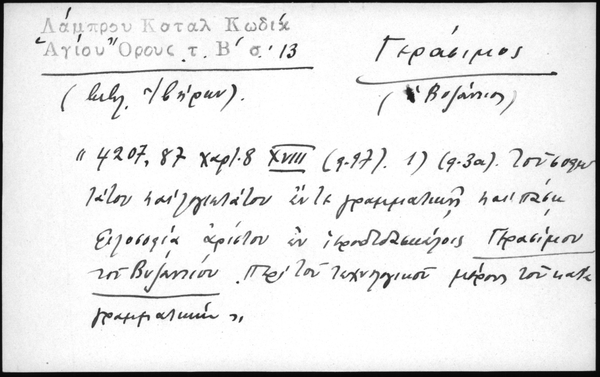 Λάμπρου Καταλ Κωδίκ
Ἁγίου Ὄρους τ. Β' σ. 13
Γεράσιμος
(βιβλ. Ἰβήρων).
(ὁ Βυζάντιος)
" 4207, 87 χαρτ. 8 XVIII (φ. 97). 1) (φ. 3α). Τοῦ σοφω
τάτου καὶ λογιωτάτου ἔν τε γραμματικῇ καὶ πάσῃ
φιλοσοφίᾳ ἀρίστου ἐν ἱεροδιδασκάλοις Γερασίμου
τοῦ Βυζαντίου Περὶ τοῦ τεχνολογικοῦ μέρους τοῦ κατὰ
γραμματικὴν "